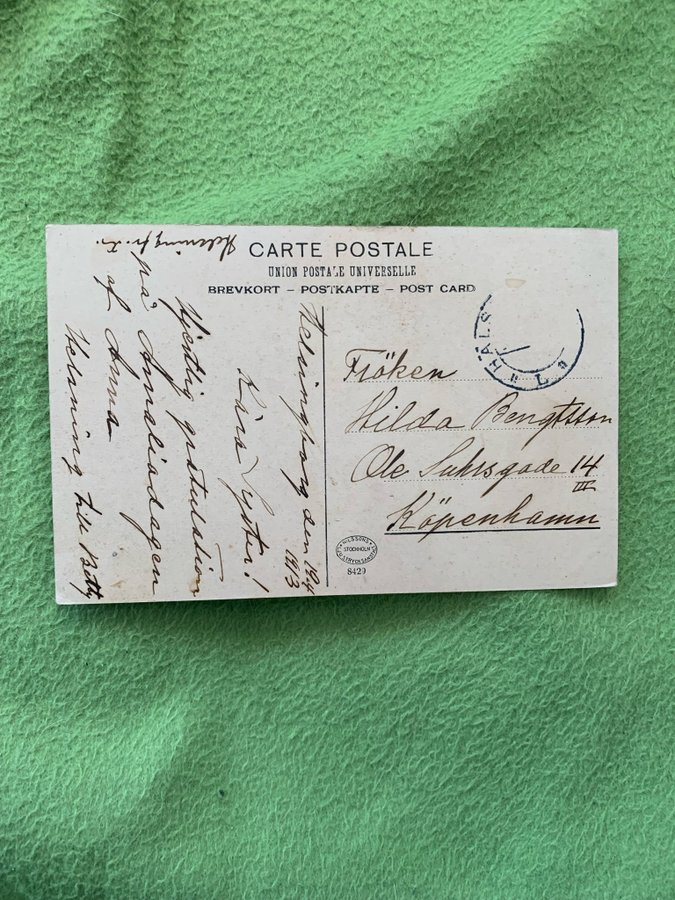 CARTE POSTALE
UNION POSTALE UNIVERSELLE
BREVKORT – POSTKARTE – POST CARD
Helsingborg den 19/4
1913
Kära Syster!
Hjertlig gratulation
på Amaliadagen
af Anna
Helsning till Betty
Helsning fr.
Fröken
Hilda Bengtsson
Ole Suhrsgade 14
III
Köpenhamn
HÄLS
L
STOCKHOLM
8429